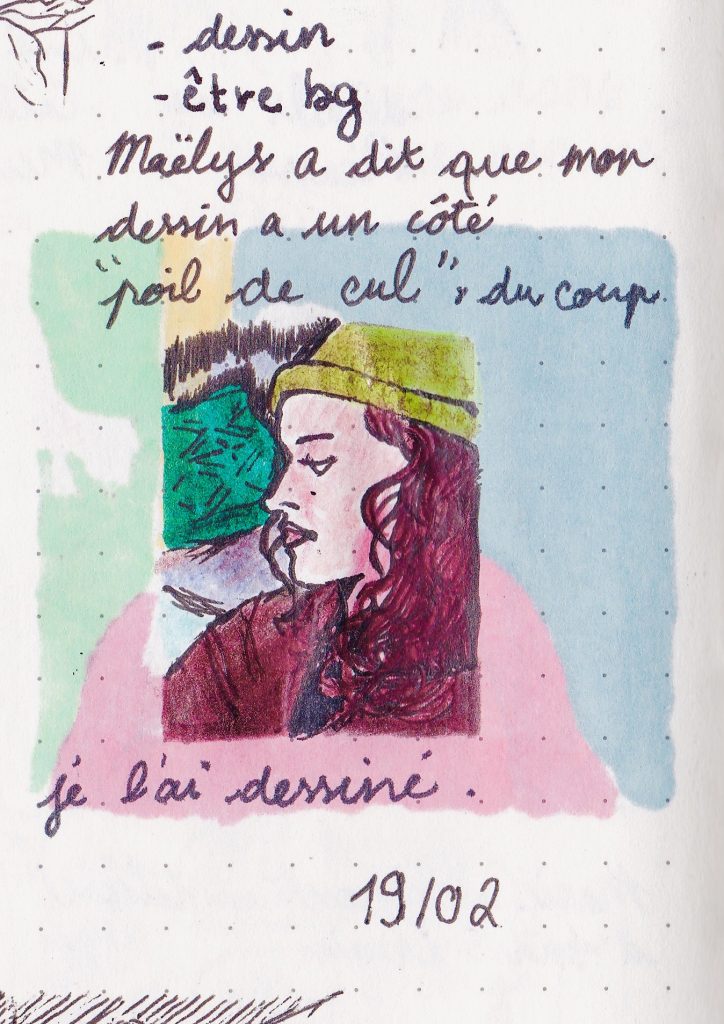 - dessin
- être bg
Maëlys a dit que mon
dessin a un côté
"poil de cul", du coup
je l'ai dessiné.
19/02